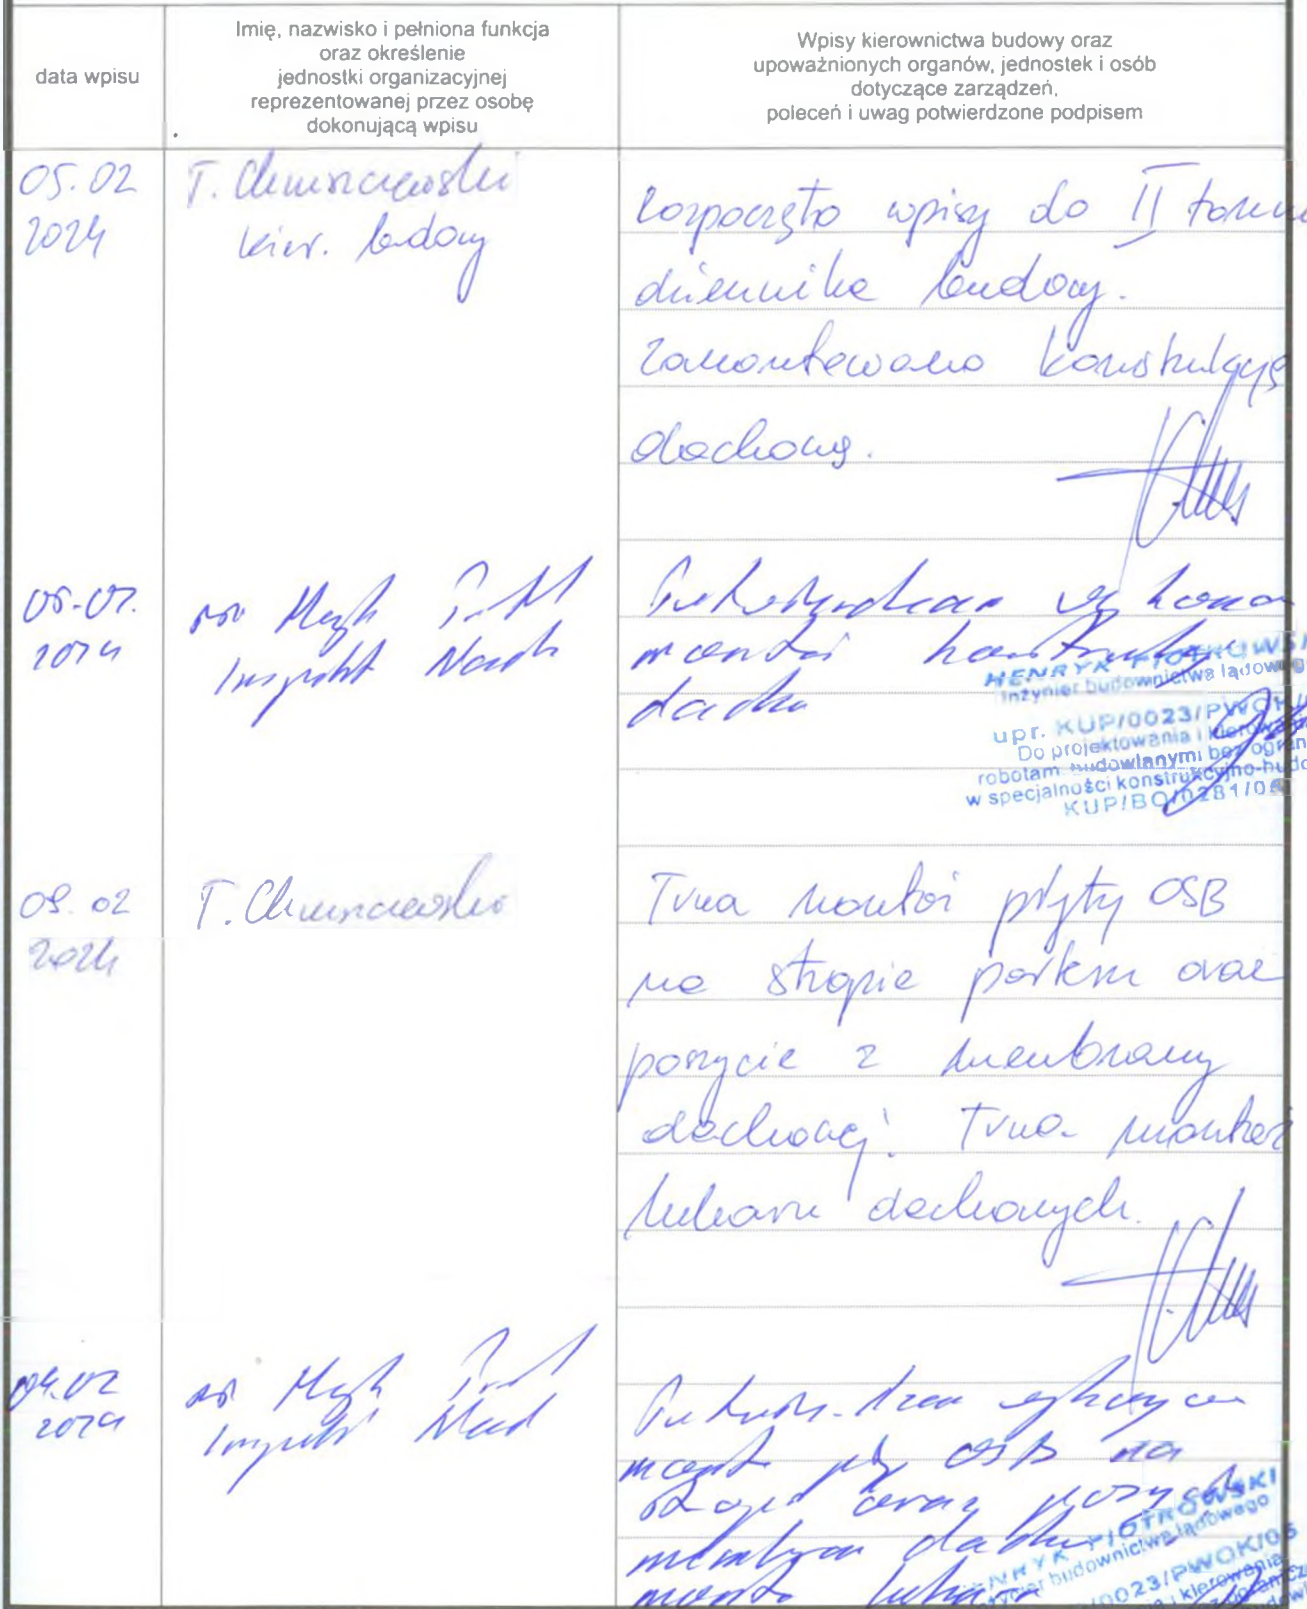 data wpisu
Imię, nazwisko i pełniona funkcja
oraz określenie
jednostki organizacyjnej
reprezentowanej przez osobę
dokonującą wpisu
Wpisy kierownictwa budowy oraz
upoważnionych organów, jednostek i osób
dotyczące zarządzeń,
poleceń i uwag potwierdzone podpisem
05.02
2024
T. Chmszczewski
kier. budowy
Rozpoczęto wpisy do II tomu
dziennika budowy.
Zamontowano konstrukcję
dachową.
05.02.
2024
Inspekt Nadz
montaż
dachu
HENRYK PIOTROWSKI
Inżynier budownictwa lądowego
upr. KUP/0023/PWOK/
Do projektowania i kierowania
robotam budowlanymi bez ogran
w specjalności konstrukcyjno-budo
KUP/BO/0281/05
09.02
2024
T. Chmszczewski
Trwa montaż płyty OSB
na stropie parteru oraz
poszycie z membrany
dachowej. Trwa montaż
lukarn dachowych.
09.02
2024
Inspekt Nad
OSB na
oraz
HENRYK PIOTROWSKI
Inżynier budownictwa lądowego
/0023/PWOK/05
i kierowania